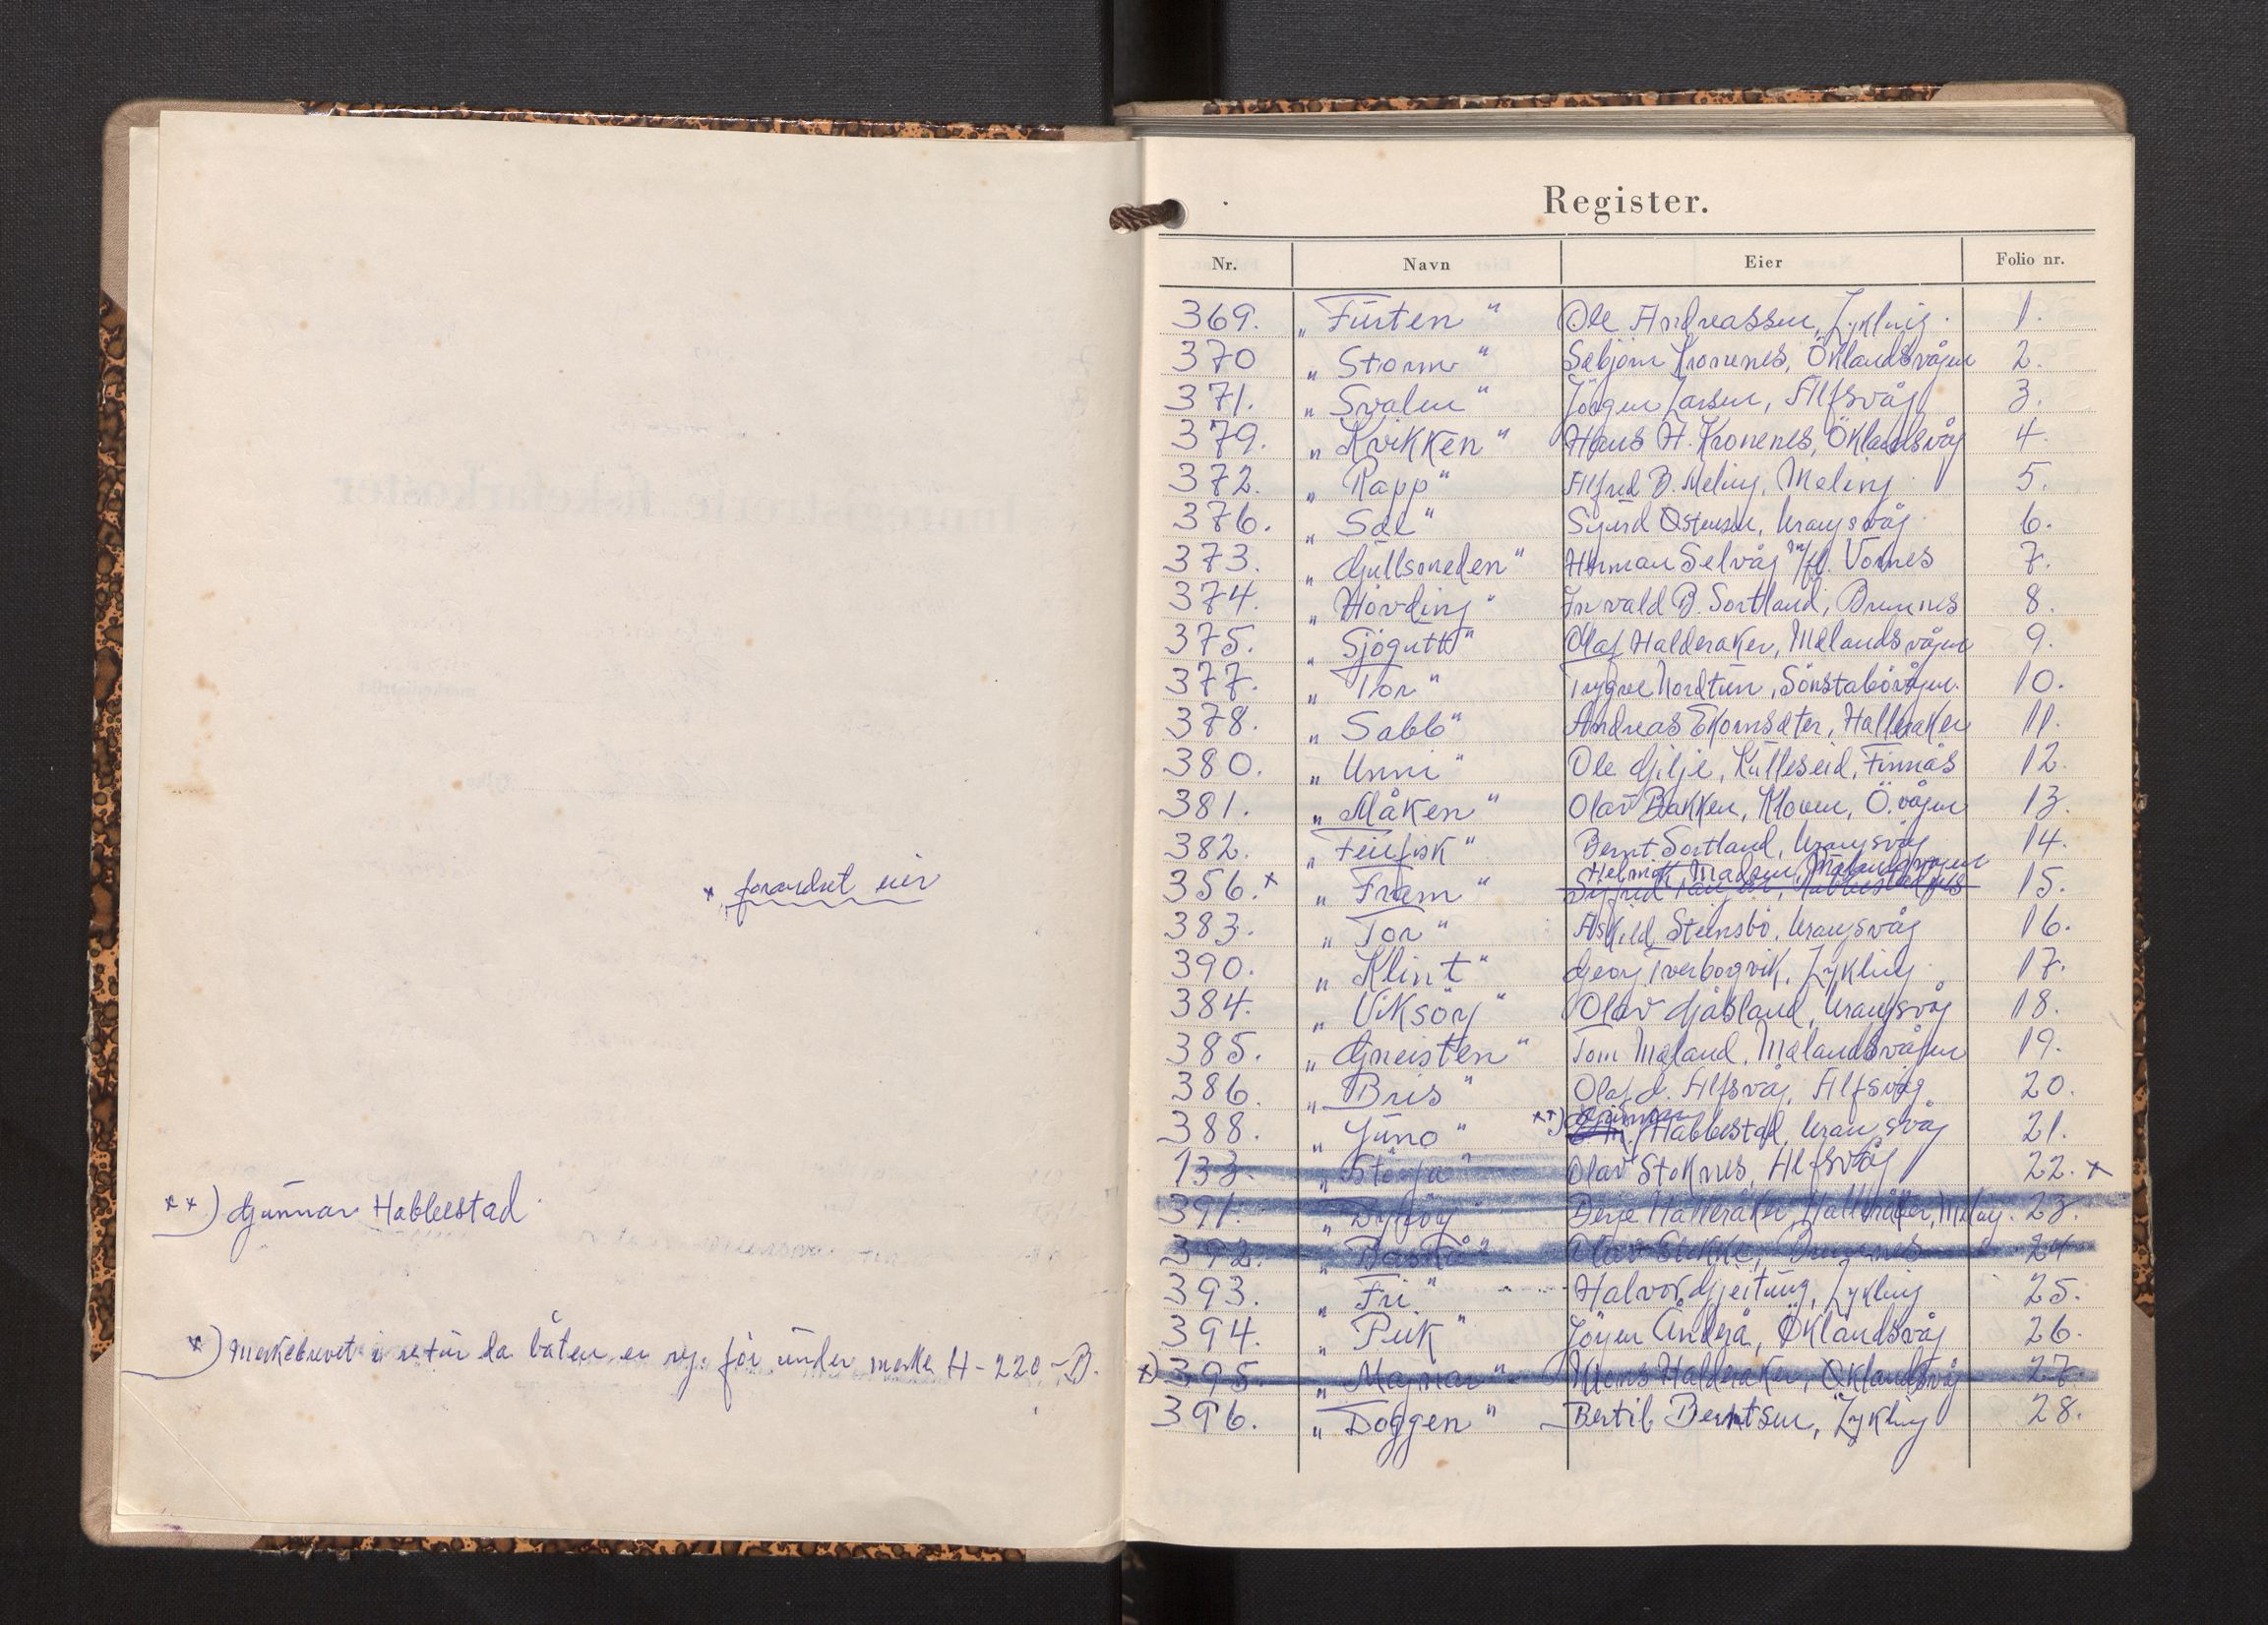 * forandret eier
**) Gunnar Habbestad.
*) Merkebrevet i retur da båten er reg. før under merke H-220-B.
Register.
Nr. Navn Eier Folio nr.
369. „Turten" Ole Andreassen, Lykling. 1.
370 „Storm" Sebjørn Kronenes, Öklandsvågen 2.
371. „Svalen" Jörgen Larsen, Alfsvåg 3.
379. „Kvikken" Hans H. Kronenes, Öklandsvåg 4.
372. „Rapp" Alfred B. Meling, Meling 5.
376. „Sæl" Sjurd Ostensen, Urangsvåg. 6.
373. „Gullsneden" Herman Selvåg m/fl. Vornes 7.
374. „Hövding" Invald B. Sortland, Bremnes 8.
375. „Sjögutt" Olaf Halderaker, Mælandsvågen 9.
377. „Tor" Trygve Nordtun, Sönstabövågen. 10.
378. „Sabb" Andreas Ekornsæter, Halleraker 11.
380. „Unni" Ole Gilje, Kulleseid, Finnås 12.
381. „Måken" Olav Bakken, Kloven, Ö.vågen 13.
382. „Feitfisk" Bernt Sortland, Urangsvåg 14.
Helmik Madsen, Mælandsvågen
356.* „Fram" 15.
383. „Tor" Askild Steinsbö, Urangsvåg 16.
390. „Klint" Georg Tverborgvik, Lykling. 17.
384. „Viksöy" Olav Gåsland, Urangsvåg 18.
385. „Gneisten" Tom Mæland, Mælandsvågen 19.
386. „Bris" Olaf J. Alfsvåg, Alfsvåg 20.
388. „Juno" **) Gunnar Habbestad, Urangsvåg 21.
133. „Störja" Olav Stoknes, Alfsvåg 22. *
391. „Dyröy" Berje Halleråker, Halleråker, Melay. 23.
392. „Baskå" Olav Stekke, Bremnes 24
393. „Fri" Halvor Gjeitung, Lykling 25.
394. „Puk" Jörgen Änderå, Øklandsvåg 26.
*) 395. „Magnar" Mons Halderaker, Øklandsvåg 27.
396. „Doggen" Bertil Berntsen, Lykling 28.